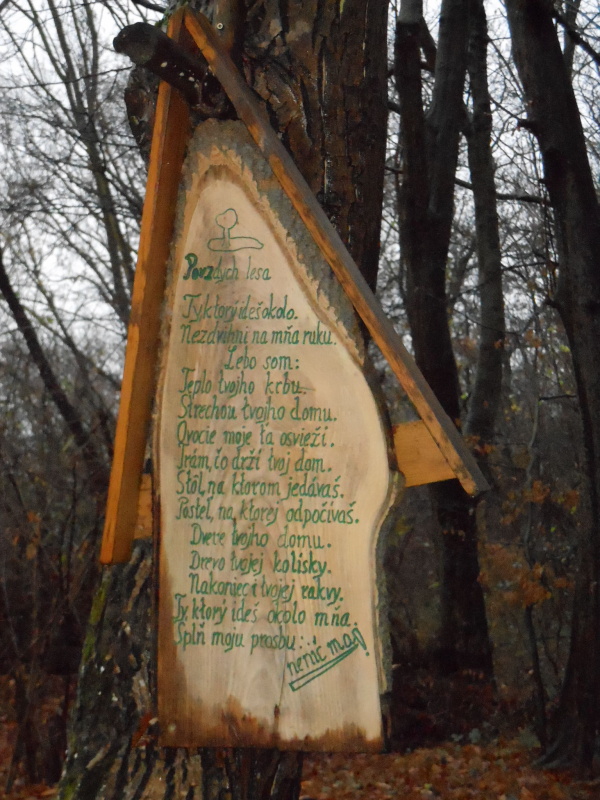 Povzdych lesa
Ty ktorý ideš okolo.
Nezdvihni na mňa ruku.
Lebo som:
Teplo tvojho krbu.
Strechou tvojho domu.
Ovocie moje ťa osvieži.
Trám, čo drží tvoj dom.
Stôl, na ktorom jedávaš.
Posteľ, na ktorej odpočívaš.
Dvere tvojho domu.
Drevo tvojej kolísky.
Nakoniec i tvojej rakvy.
Ty, ktorý ideš okolo mňa.
Splň moju prosbu:
neníč ma!